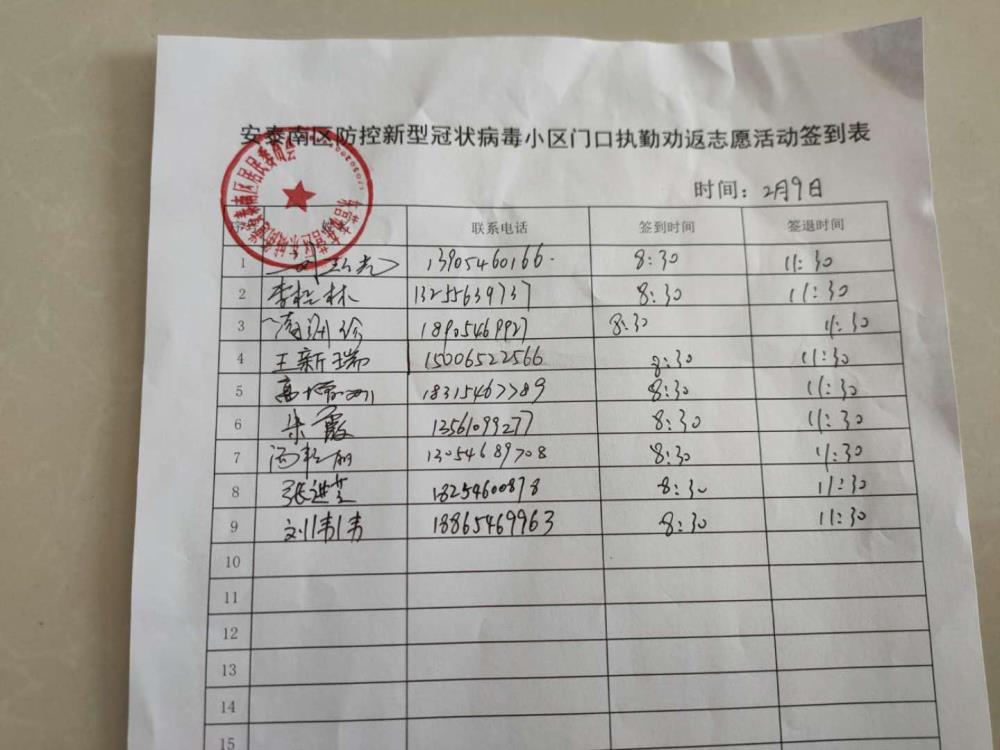 安泰南区防控新型冠状病毒小区门口执勤劝返志愿活动签到表
时间：2月9日
联系电话 签到时间 签退时间
1 13905460166. 8:30 11:30
2 李松林 13255639737 8:30 11:30
3 18905469927 8:30 11:30
4 王新瑞 15006522566 8:30 11:30
5 18315467789 8:30 11:30
6 朱霞 13561099277 8:30 11:30
7 13054689708 8:30 11:30
8 张进芝 18254600878 8:30 11:30
9 刘伟伟 18865469963 8:30 11:30
10
11
12
13
14
15